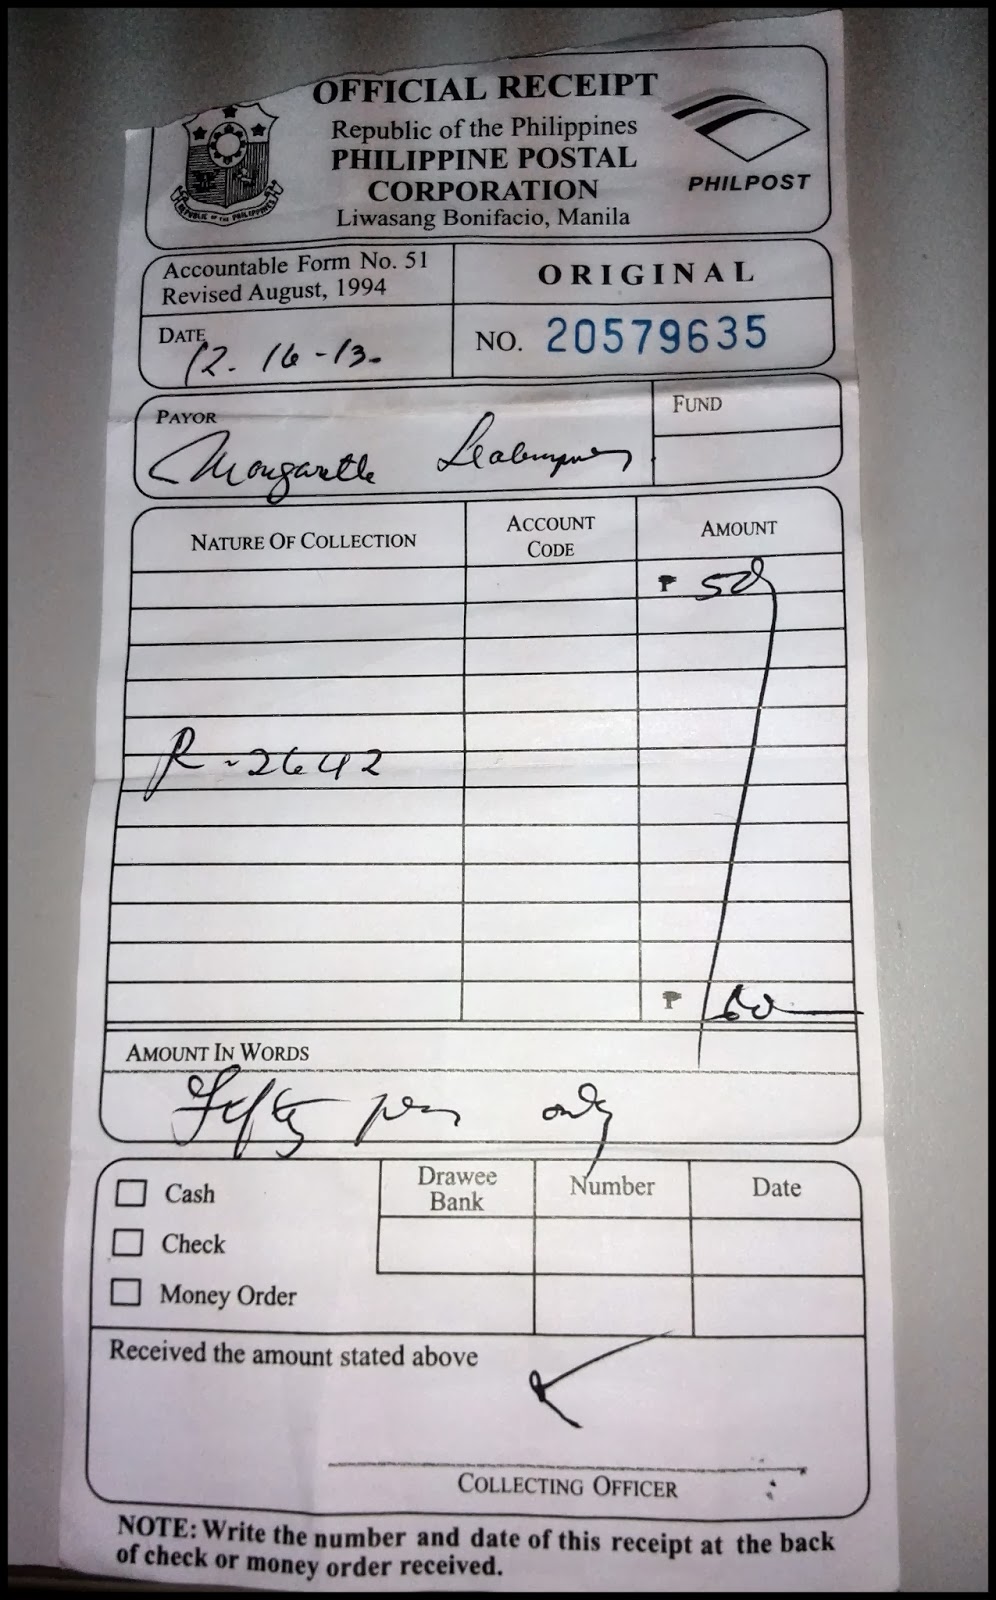 OFFICIAL RECEIPT
Republic of the Philippines
PHILIPPINE POSTAL
CORPORATION
Liwasang Bonifacio, Manila
REPUBLIC OF THE PHILIPPINES
PHILPOST
Accountable Form No. 51
Revised August, 1994
ORIGINAL
DATE
12-16-13
NO. 20579635
PAYOR
Margarette
FUND
NATURE OF COLLECTION
ACCOUNT
CODE
AMOUNT
₱ 50
R-2642
₱ 50
AMOUNT IN WORDS
Fifty pesos only
Cash
Check
Money Order
Drawee
Bank
Number
Date
Received the amount stated above
COLLECTING OFFICER
NOTE: Write the number and date of this receipt at the back
of check or money order received.